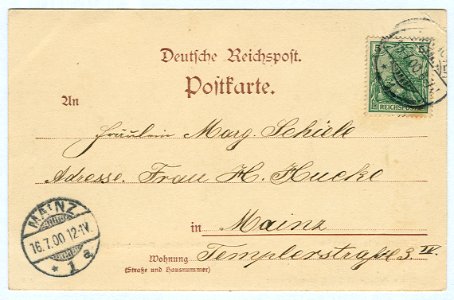 Deutsche Reichspost.
Postkarte.
An
Fräulein Marg. Schüle
Adresse. Frau H. Hucke
in Mainz
Wohnung Templerstraße 3. IV.
(Straße und Hausnummer)
MAINZ
16.7.00 12-1V.
* 1 a
5
REICHSPOST